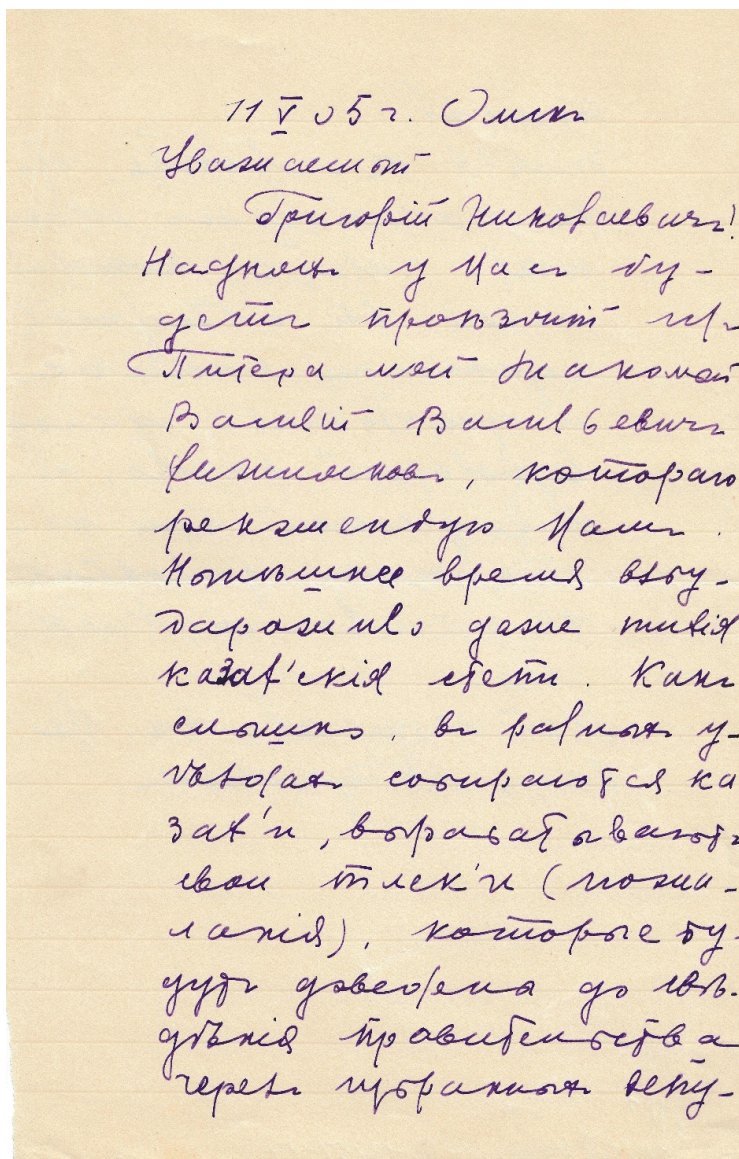 11 V 05 г. Омскъ
Уважаемый
Григорій Николаевичъ!
На дняхъ у Васъ бу-
детъ проѣздомъ изъ
Питера мой знакомый
Василій Васильевичъ
, котораго
рекомендую Вамъ.
Нынѣшнее время взбу-
даражило даже тихія
казак'скія степи. Какъ
слышно, въ разныхъ у-
ѣздахъ собираются ка
зак'и, вырабатываютъ
свои тілек'и (поже-
ланія), которые бу-
дутъ доведены до свѣ-
дѣнія правительства
черезъ избранныхъ депу-